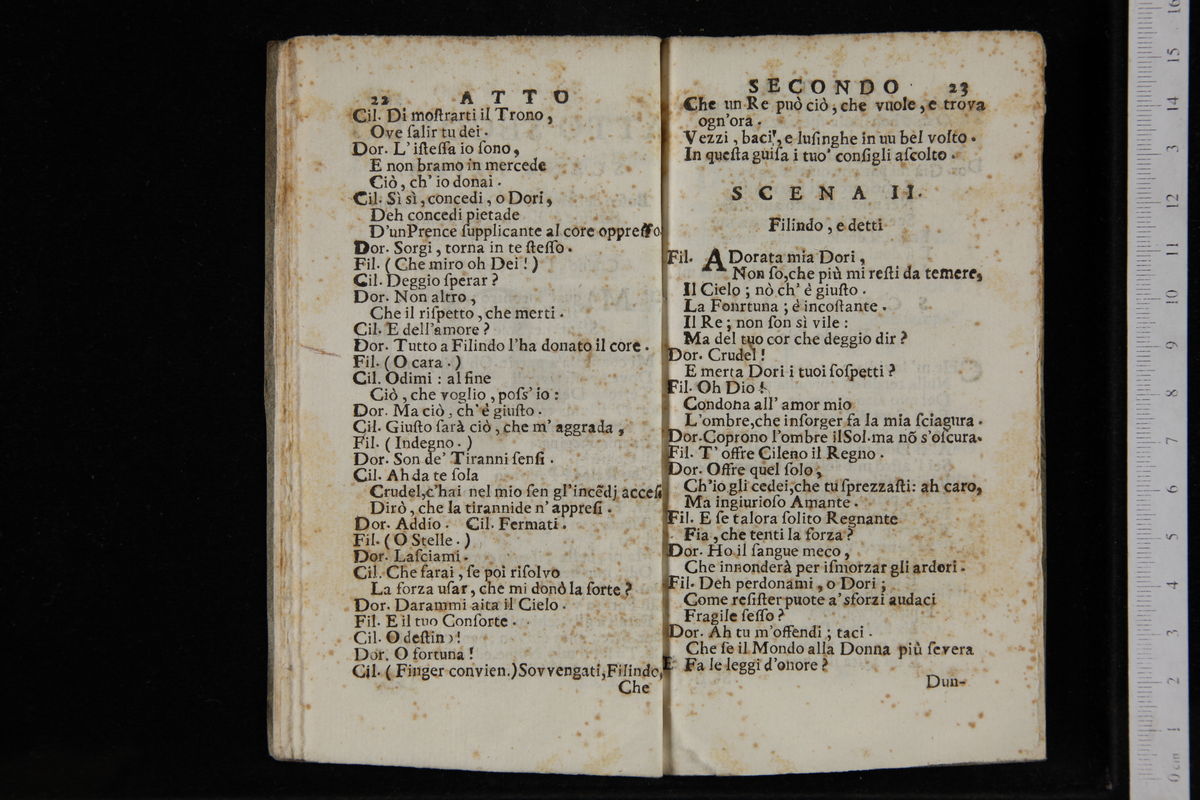 22 ATTO
Cil. Di moſtrarti il Trono,
Ove ſalir tu dei.
Dor. L' iſteſſa io ſono,
E non bramo in mercede
Ciò, ch' io donai.
Cil. Sì sì, concedi, o Dori,
Deh concedi pietade
D'unPrence ſupplicante al core oppreſſo
Dor. Sorgi, torna in te ſteſſo.
Fil. (Che miro oh Dei!)
Cil. Deggio ſperar?
Dor. Non altro,
Che il riſpetto, che merti.
Cil. E dell'amore?
Dor. Tutto a Filindo l'ha donato il core.
Fil. (O cara.)
Cil. Odimi: al fine
Ciò, che voglio, poſs' io:
Dor. Ma ciò, ch' è giuſto.
Cil. Giuſto ſarà ciò, che m' aggrada,
Fil. (Indegno.)
Dor. Son de' Tiranni ſenſi.
Cil. Ah da te ſola
Crudel,c'hai nel mio ſen gl'incẽdj acceſi
Dirò, che la tirannide n' appreſi.
Dor. Addio. Cil. Fermati.
Fil. (O Stelle.)
Dor. Laſciami.
Cil. Che farai, ſe poi riſolvo
La forza uſar, che mi donò la ſorte?
Dor. Darammi aita il Cielo.
Fil. E il tuo Conſorte.
Cil. O deſtino!
Dor. O fortuna!
Cil. (Finger convien.)Sovvengati,Filindo,
Che
SECONDO 23
Che un Re può ciò, che vuole, e trova
ogn'ora.
Vezzi, baci', e luſinghe in uu bel volto.
In queſta guiſa i tuo' conſigli aſcolto.
SCENA II.
Filindo, e detti
Fil. ADorata mia Dori,
Non ſo,che più mi reſti da temere,
Il Cielo; nò ch' è giuſto.
La Fonrtuna; è incoſtante.
Il Re; non ſon sì vile:
Ma del tuo cor che deggio dir?
Dor. Crudel!
E merta Dori i tuoi ſoſpetti?
Fil. Oh Dio!
Condona all' amor mio
L'ombre,che inſorger fa la mia ſciagura.
Dor.Coprono l'ombre ilSol.ma nõ s'oſcura.
Fil. T' offre Cileno il Regno.
Dor. Offre quel ſolo,
Ch'io gli cedei,che tu ſprezzaſti: ah caro,
Ma ingiurioſo Amante.
Fil. E ſe talora ſolito Regnante
Fia, che tenti la forza?
Dor. Ho il ſangue meco,
Che innonderà per iſmorzar gli ardori.
Fil. Deh perdonami, o Dori;
Come reſiſter puote a' sforzi audaci
Fragile ſeſſo?
Dor. Ah tu m'offendi; taci.
Che ſe il Mondo alla Donna più ſevera
E Fa le leggi d'onore?
Dun-